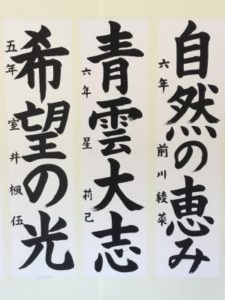 自然の恵み
六年 前川綾菜
青雲大志
六年 星莉己
希望の光
五年 室井楓伍